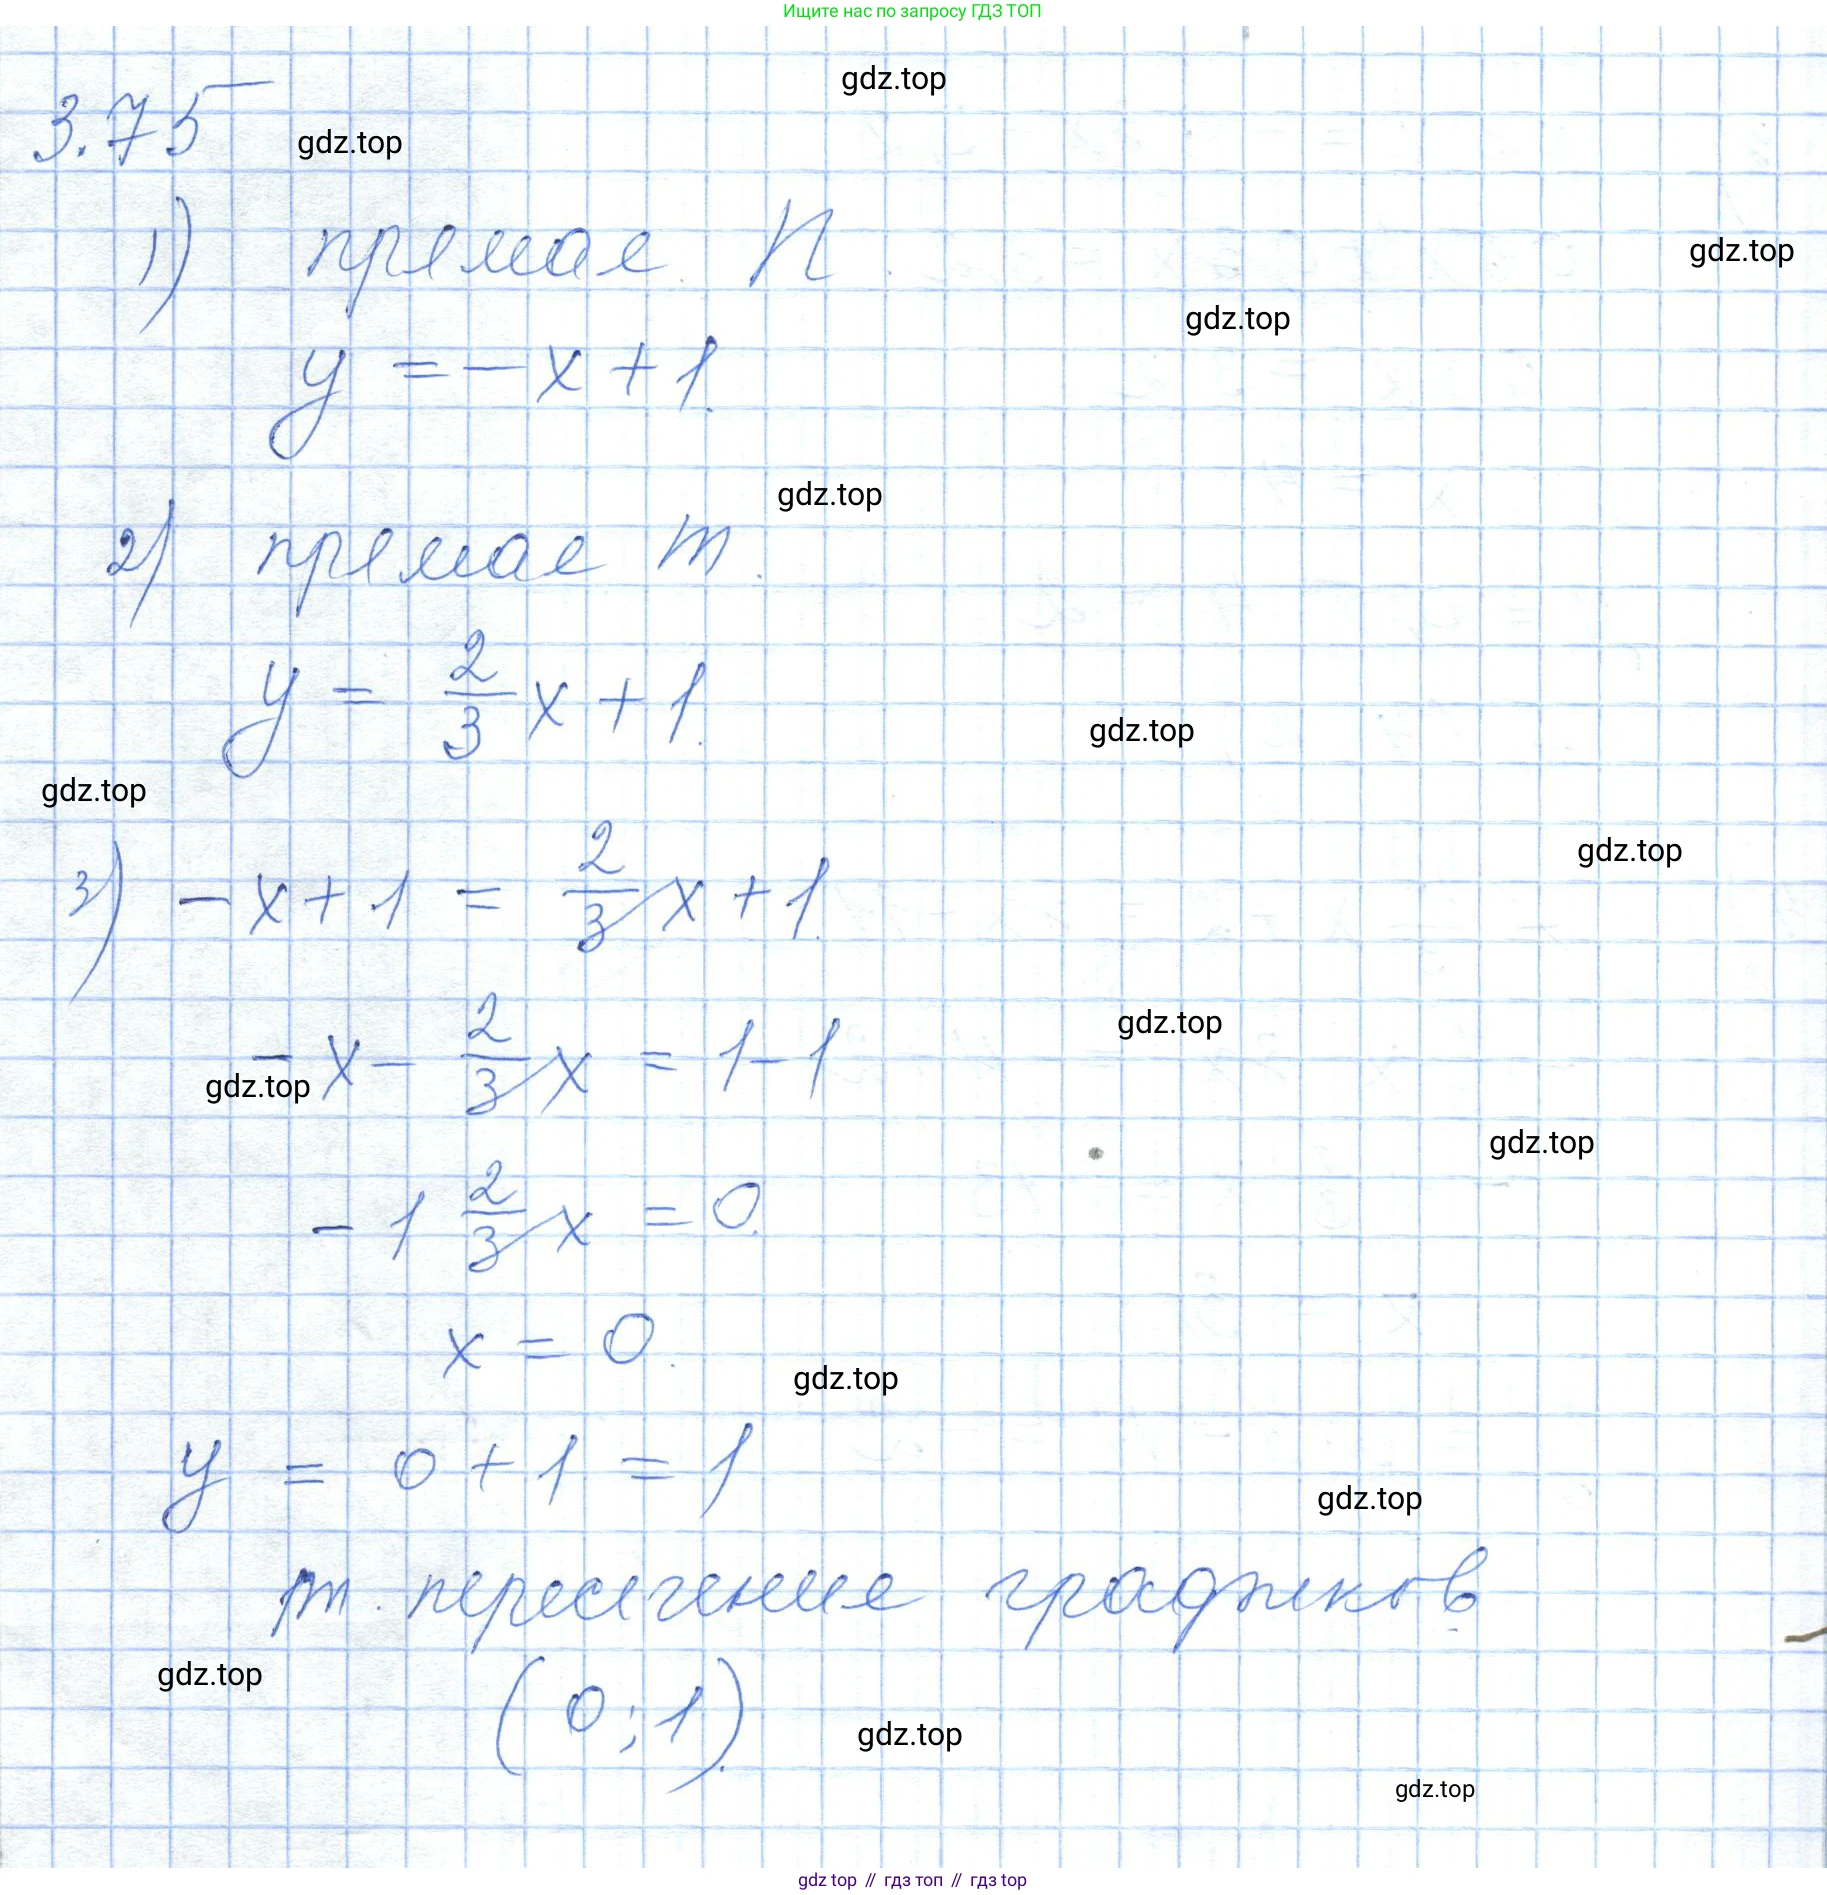 Ищите нас по запросу ГДЗ ТОП
gdz.top
3.75
gdz.top
1) прямая n
gdz.top
gdz.top
y = -x + 1.
gdz.top
2) прямая m.
y = 2/3 x + 1.
gdz.top
gdz.top
gdz.top
3) -x + 1 = 2/3 x + 1.
gdz.top
-x - 2/3 x = 1 - 1
gdz.top
gdz.top
-1 2/3 x = 0.
x = 0.
gdz.top
y = 0 + 1 = 1
gdz.top
т. пересечение графиков
gdz.top
(0; 1).
gdz.top
gdz.top
gdz top // гдз топ // гдз top